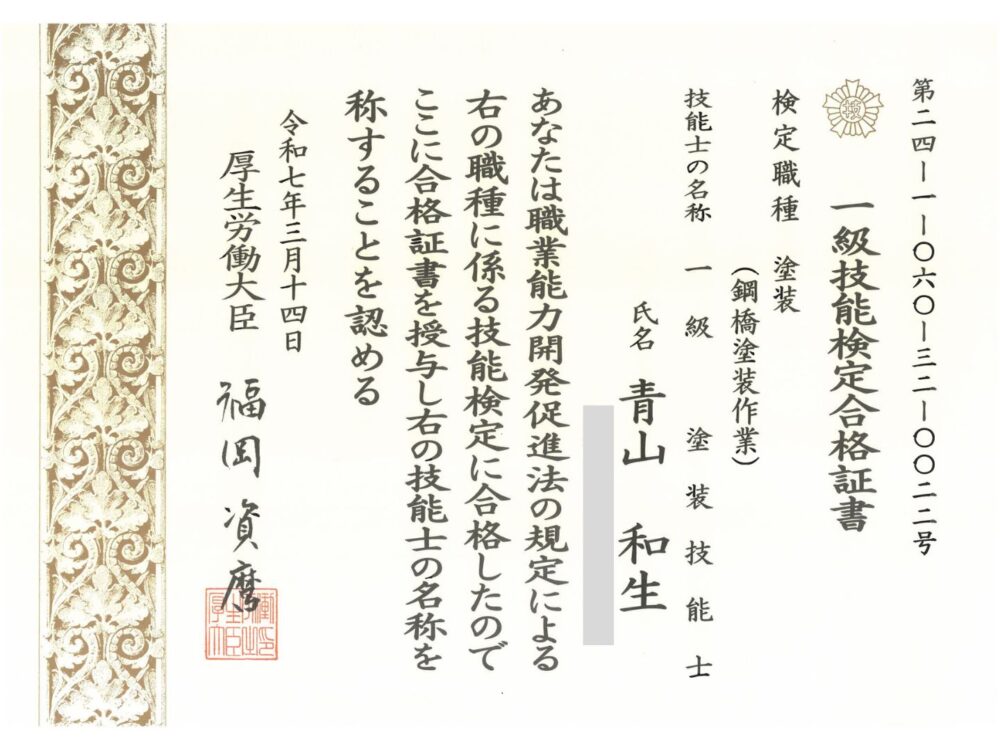 第二四－一－〇六〇－三二－〇〇二二号
一級技能検定合格証書
検定職種　塗装
（鋼橋塗装作業）
技能士の名称　一級　塗装技能士
氏名　青山　和生
あなたは職業能力開発促進法の規定による
右の職種に係る技能検定に合格したので
ここに合格証書を授与し右の技能士の名称を
称することを認める
令和七年三月十四日
厚生労働大臣　福岡　資麿